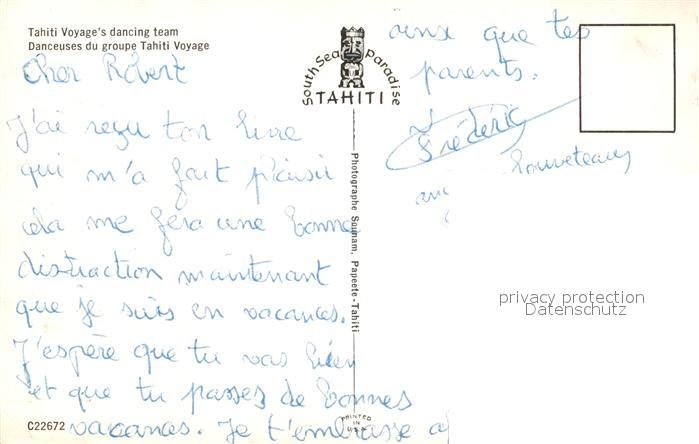 Tahiti Voyage's dancing team
Danceuses du groupe Tahiti Voyage
Cher Robert
J'ai reçu ton livre
qui m'a fait plaisir
cela me fera une bonne
distraction maintenant
que je suis en vacances.
J'espère que tu vas bien
et que tu passes de bonnes
vacances. Je t'embrasse a
C22672
South Sea Paradise
TAHITI
Photographe Sounam, Papeete-Tahiti
PRINTED
IN
U.S.A.
ainsi que tes
parents.
Frédéric
Louveteaux
privacy protection
Datenschutz